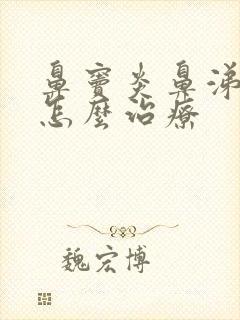 鼻竇炎鼻涕
怎麼治療
魏宏博